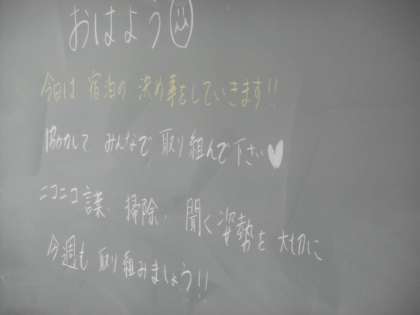 おはよう
今日は 宿泊の 決め事をしていきます!!
協力して みんなで 取り組んで下さい♥
ニコニコ課、掃除、聞く姿勢を大切に
今週も 取り組みましょう!!